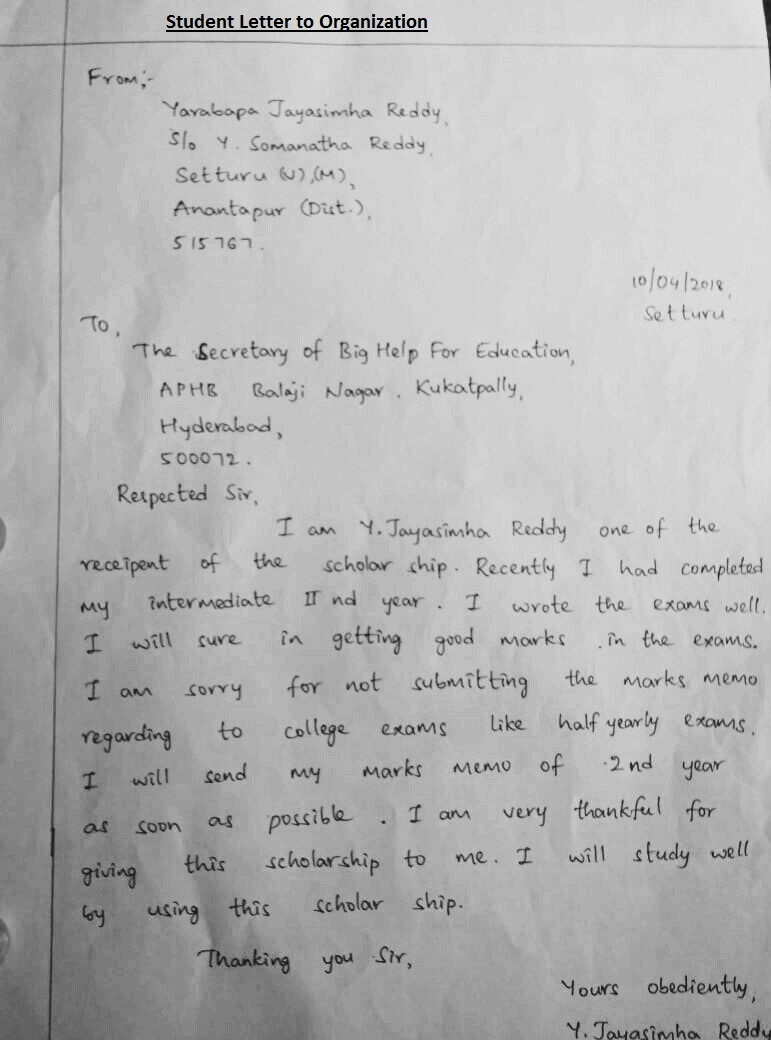 Student Letter to Organization
From;-
Yarabapa Jayasimha Reddy,
S/o Y. Somanatha Reddy,
Setturu (V),(M),
Anantapur (Dist.),
515767.
10/04/2018,
Setturu.
To,
The Secretary of Big Help For Education,
APHB Balaji Nagar. Kukatpally,
Hyderabad,
500072.
Respected Sir,
I am Y. Jayasimha Reddy one of the
receipent of the scholar ship. Recently I had completed
my intermediate II nd year. I wrote the exams well.
I will sure in getting good marks .in the exams.
I am sorry for not submitting the marks memo
regarding to college exams like half yearly exams.
I will send my marks memo of 2nd year
as soon as possible. I am very thankful for
giving this scholarship to me. I will study well
by using this scholar ship.
Thanking you Sir,
Yours obediently,
Y. Jayasimha Reddy